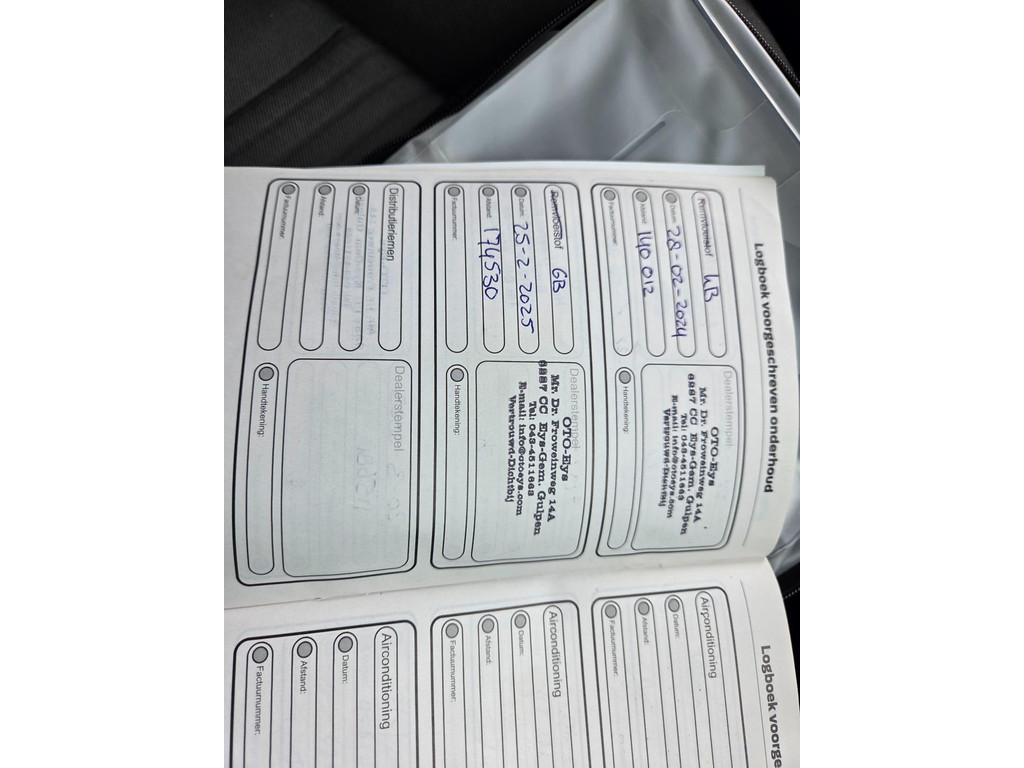 Logboek voorgeschreven onderhoud
Remvloeistof GB
Datum: 28-02-2024
Afstand: 140 012
Factuurnummer:
Dealerstempel
OTO-Eys
Mr. Dr. Froweinweg 14A
6287 CC Eys-Gem. Gulpen
Tel: 043-4511663
E-mail: info@otoeys.com
Vertrouwd-Dichtbij
Handtekening:
Remvloeistof GB
Datum: 25-2-2025
Afstand: 174530
Factuurnummer:
Dealerstempel
OTO-Eys
Mr. Dr. Froweinweg 14A
6287 CC Eys-Gem. Gulpen
Tel: 043-4511663
E-mail: info@otoeys.com
Vertrouwd-Dichtbij
Handtekening:
Distributieriemen
Datum:
Afstand:
Factuurnummer:
Dealerstempel
Handtekening:
Logboek voorge
Airconditioning
Datum:
Afstand:
Factuurnummer:
Airconditioning
Datum:
Afstand:
Factuurnummer:
Airconditioning
Datum:
Afstand:
Factuurnummer: